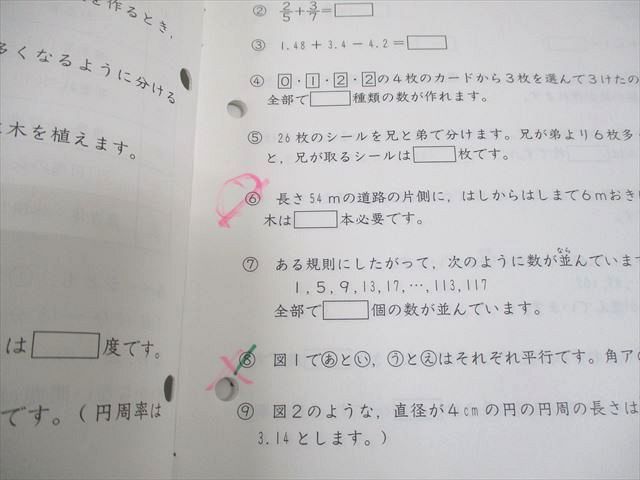 を作るとき,
多くなるように分ける
木を植えます。
は□度です。
です。(円周率は
② 2/5+3/7=□
③ 1.48+3.4-4.2=□
④ 0・1・2・2の4枚のカードから3枚を選んで3けたの
全部で□種類の数が作れます。
⑤ 26枚のシールを兄と弟で分けます。兄が弟より6枚多
と,兄が取るシールは□枚です。
⑥ 長さ54mの道路の片側に,はしからはしまで6mおき
木は□本必要です。
⑦ ある規則にしたがって,次のように数が並んでいます
なら
1,5,9,13,17,…,113,117
全部で□個の数が並んでいます。
⑧ 図1であとい,うとえはそれぞれ平行です。角アの
⑨ 図2のような,直径が4cmの円の円周の長さは
3.14とします。)